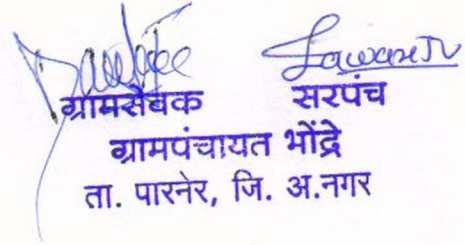 ग्रामसेवक सरपंच
ग्रामपंचायत भोंद्रे
ता. पारनेर, जि. अ.नगर